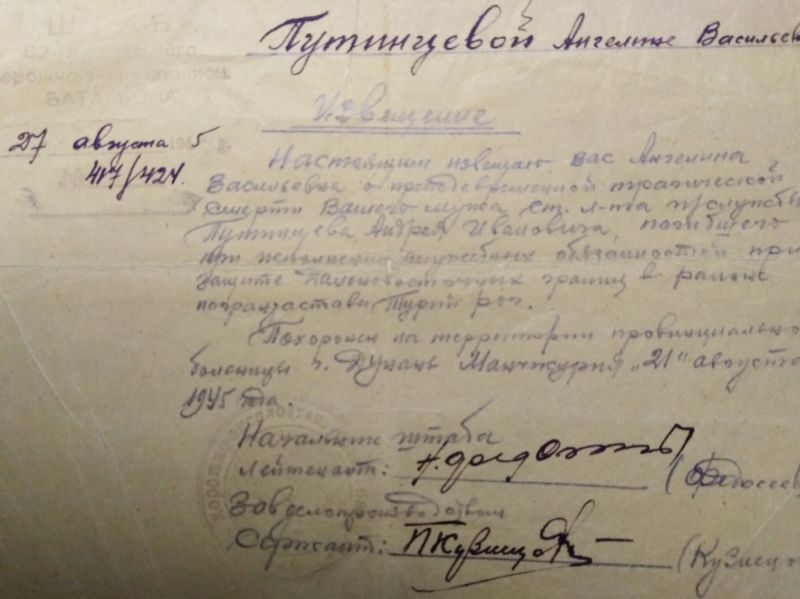 ШТАБ
БАТАЛЬОНА
Путинцевой Ангелине Васильев
Извещение
27 августа 194 5 г.
№ 417/424.
Настоящим извещаю вас Ангелина
Васильевна о преждевременной трагической
смерти Вашего мужа ст. л-та
Путинцева Андрея Ивановича, погибшего
при исполнении служебных обязанностей при
защите дальневосточных границ в районе
погранзаставы Турий рог.
Похоронен на территории провинциально
больницы г. Дунань Манчжурия „21" августа
1945 года.
Начальник штаба
Лейтенант: (Федосеев
Зав делопроизводством
Сержант: ПКузнецов (Кузнецо